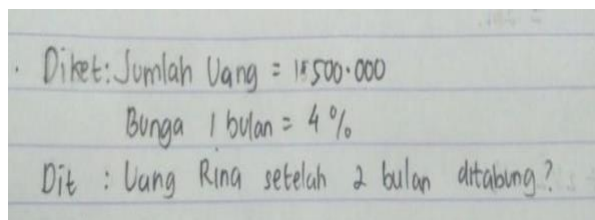 . Diket: Jumlah Uang = 500.000
Bunga 1 bulan = 4%
Dit : Uang Rina setelah 2 bulan ditabung?